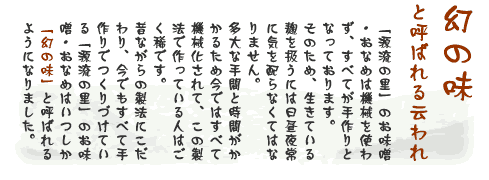 幻の味
と呼ばれる云われ
「源流の里」のお味噌
・おなめは機械を使わ
ず、すべてが手作りと
なっております。
そのため、生きている
麹を扱うには日昼夜常
に気を配らなくてはな
りません。
多大な手間と時間がか
かるため今ではすべて
機械化されて、この製
法で作っている人はご
く稀です。
昔ながらの製法にこだ
わり、今でもすべて手
作りでつくりづけてい
る「源流の里」のお味
噌・おなめはいつしか
「幻の味」と呼ばれる
ようになりました。